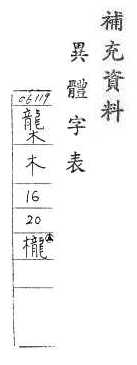 補充資料
異體字表
06119
龒
木
16
20
櫳